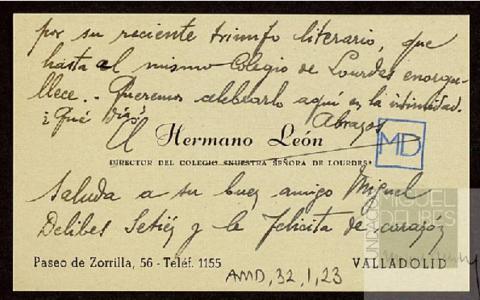 por su reciente triunfo literario, que
hasta al mismo Colegio de Lourdes enorgu-
llece.. Queremos celebrarlo aquí en la intimidad.
¿Qué
Abrazos
El Hermano León
MD
DIRECTOR DEL COLEGIO «NUESTRA SEÑORA DE LOURDES»
Saluda a su buen amigo Miguel
Delibes Setién y le felicita de corazón
Paseo de Zorrilla, 56 - Teléf. 1155
VALLADOLID
AMD, 32, 1, 23
FUNDACIÓN
MIGUEL
DELIBES